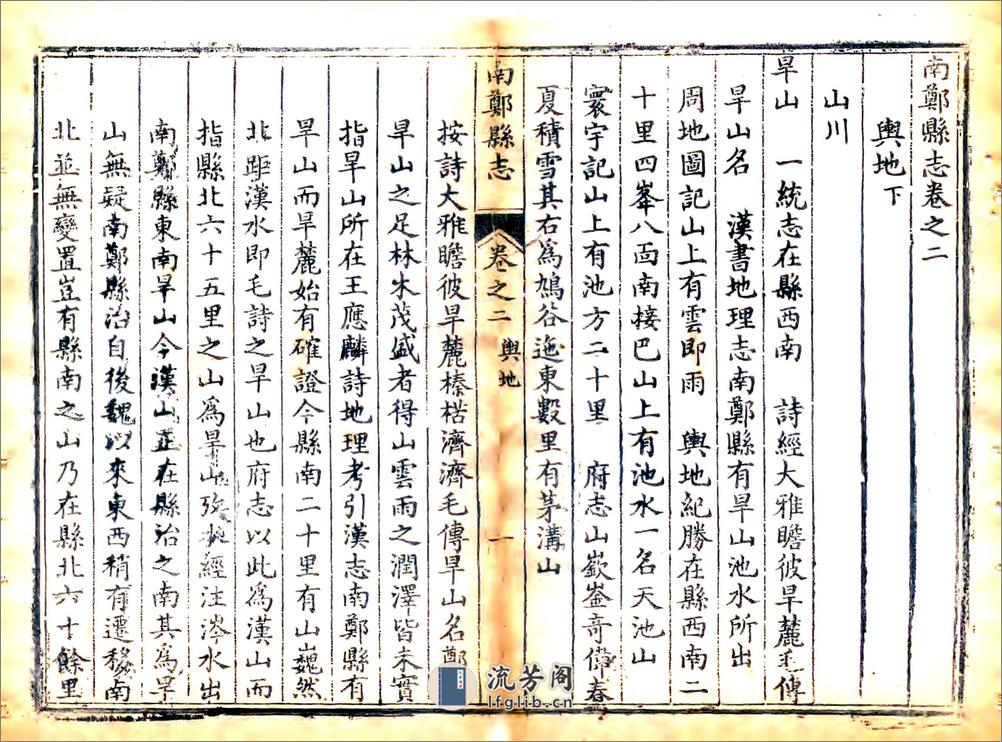 南鄭縣志卷之二
輿地下
山川
旱山　一統志在縣西南　詩經大雅瞻彼旱麓毛傳
旱山名　漢書地理志南鄭縣有旱山池水所出
周地圖記山上有雲即雨　輿地紀勝在縣西南二
十里四峯八面南接巴山上有池水一名天池山
寰宇記山上有池方二十里　府志山嶔崟奇偉春
夏積雪其右為鳩谷迤東數里有茅溝山
南鄭縣志　卷之二　輿地　一
按詩大雅瞻彼旱麓榛楛濟濟毛傳旱山名鄭
旱山之足林木茂盛者得山雲雨之潤澤皆未實
指旱山所在王應麟詩地理考引漢志南鄭縣有
旱山而旱麓始有確證今縣南二十里有山巍然
北距漢水即毛詩之旱山也府志以此為漢山而
指縣北六十五里之山為旱山攷水經注涔水出
南鄭縣東南旱山今漢山正在縣治之南其為旱
山無疑南鄭縣治自後魏以來東西稍有遷移南
北並無變置豈有縣南之山乃在縣北六十餘里
流芳阁
lfglib.cn